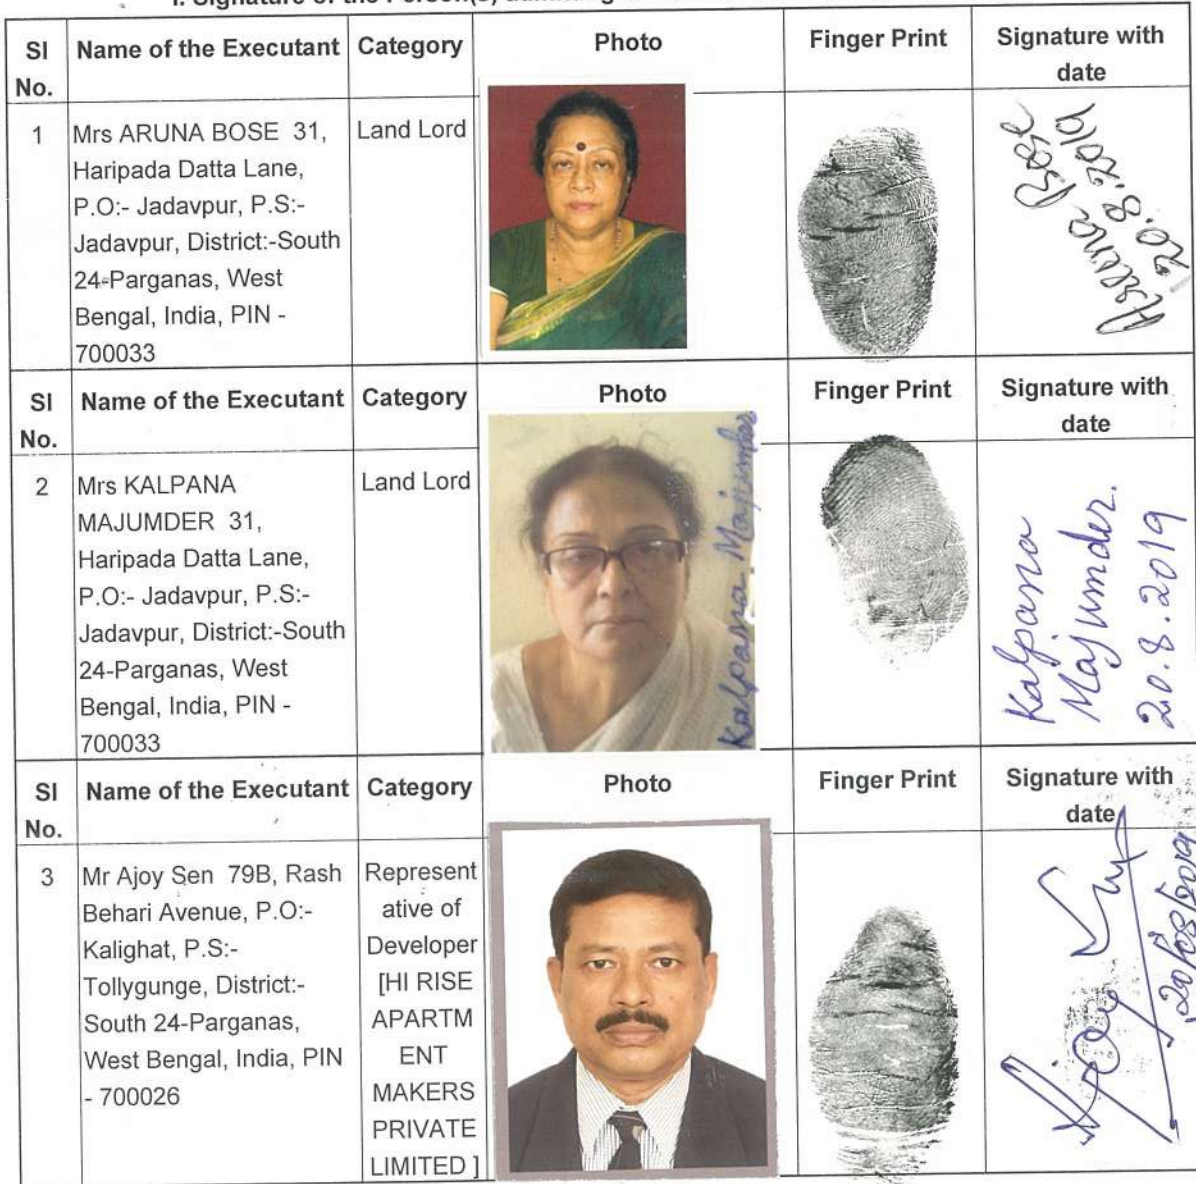 Sl No. Name of the Executant Category Photo Finger Print Signature with date
1 Mrs ARUNA BOSE 31, Land Lord
Haripada Datta Lane,
P.O:- Jadavpur, P.S:-
Jadavpur, District:-South
24-Parganas, West
Bengal, India, PIN -
700033
Aruna Bose
20.8.2019
Sl No. Name of the Executant Category Photo Finger Print Signature with date
2 Mrs KALPANA Land Lord
MAJUMDER 31,
Haripada Datta Lane,
P.O:- Jadavpur, P.S:-
Jadavpur, District:-South
24-Parganas, West
Bengal, India, PIN -
700033
Kalpana Majumder
Kalpana
Majumder.
20.8.2019
Sl No. Name of the Executant Category Photo Finger Print Signature with date
3 Mr Ajoy Sen 79B, Rash
Behari Avenue, P.O:-
Kalighat, P.S:-
Tollygunge, District:-
South 24-Parganas,
West Bengal, India, PIN
- 700026
Represent
ative of
Developer
[HI RISE
APARTM
ENT
MAKERS
PRIVATE
LIMITED ]
Ajoy
20/08/2019